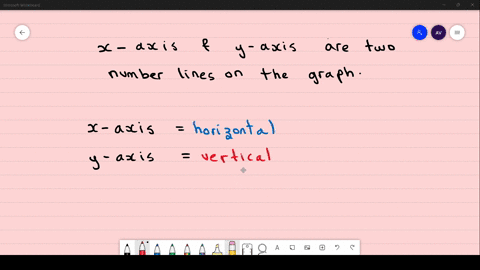 Microsoft Whiteboard
AV
x-axis & y-axis are two
number lines on the graph.
x-axis = horizontal
y-axis = vertical